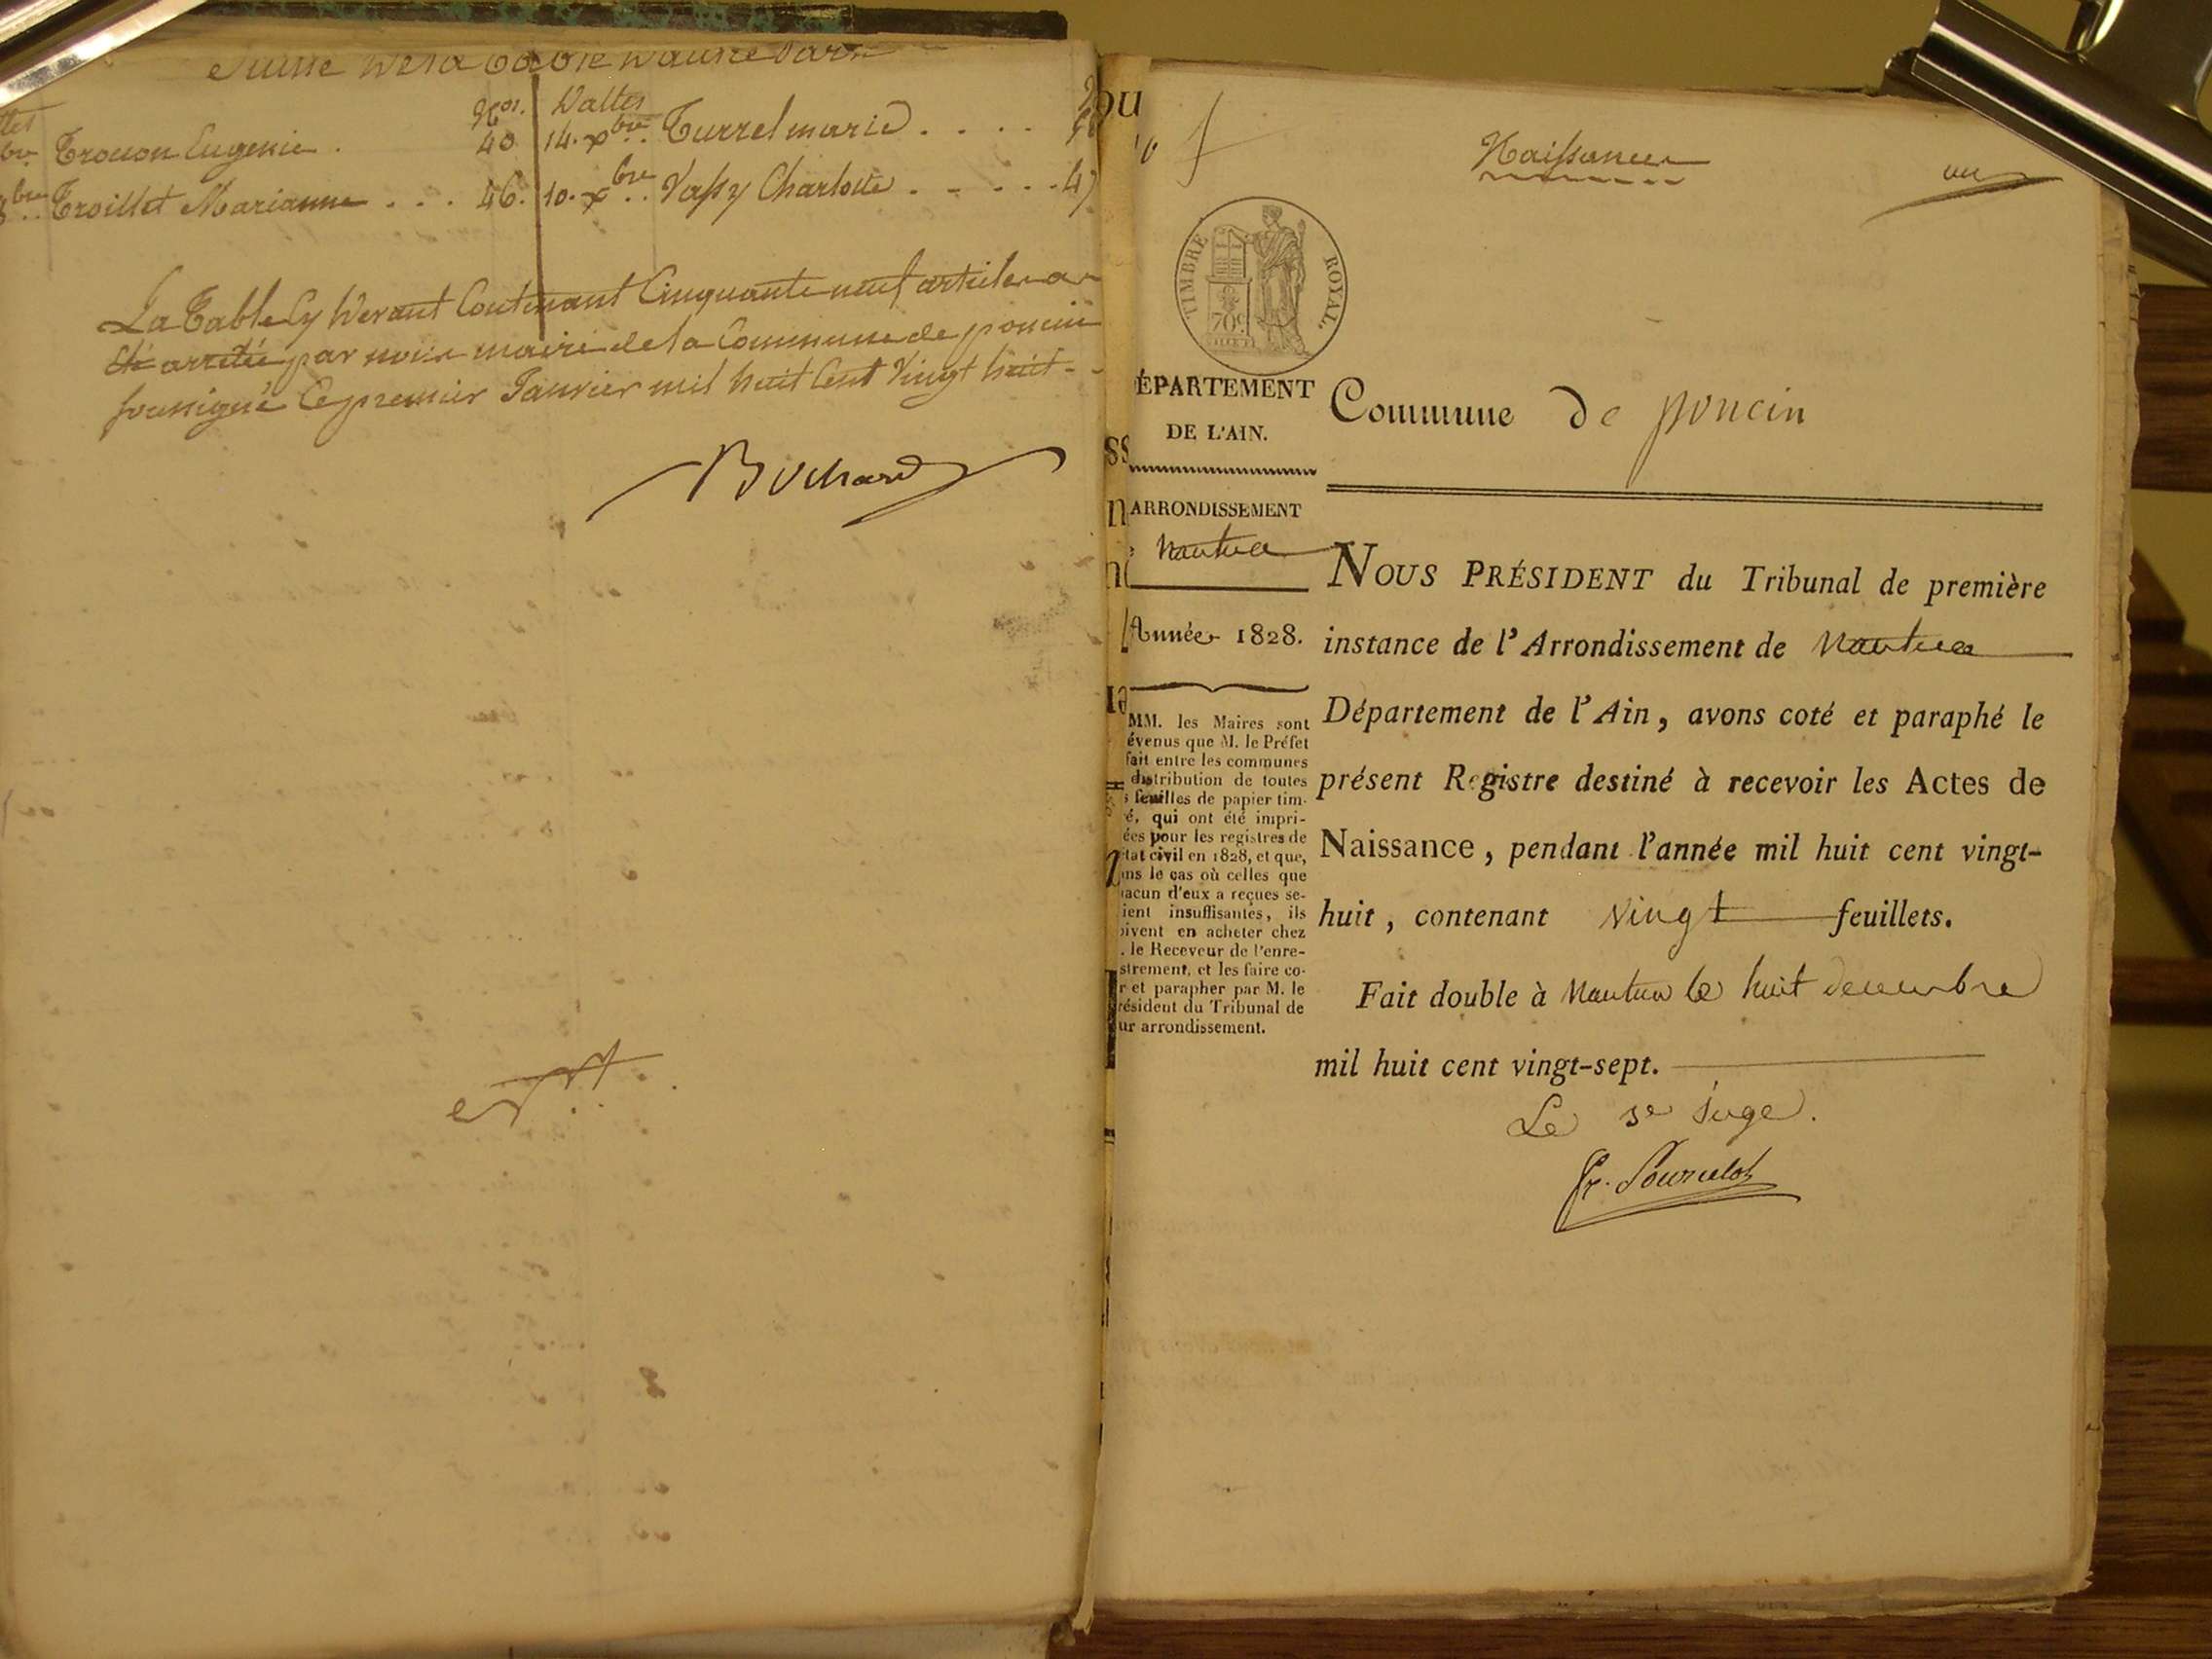 Suitte de la table d'autre part
Nos. Dattes
Trouon Eugenie . 40 14. xbre .. Turrel marie . . . .
8bre .. Troillet Marianne . . . 46. 10. xbre .. Vassy Charlotte . . . . . 47
La Table Cy devant Contenant Cinquante neuf articles a
été arretée par nous maire de la Commune de poncin
soussigné Ce premier Janvier mil huit Cent Vingt huit -
Bochard
Naissances
un
TIMBRE ROYAL.
70c.
DÉPARTEMENT
DE L'AIN.
Commune de poncin
ARRONDISSEMENT
Nantua
Année 1828.
MM. les Maires sont
évenus que M. le Préfet
fait entre les communes
distribution de toutes
s feuilles de papier tim-
é, qui ont été impri-
ées pour les registres de
tat civil en 1828, et que,
ns le cas où celles que
acun d'eux a reçues se-
ient insuffisantes, ils
oivent en acheter chez
. le Receveur de l'enre-
strement, et les faire co-
r et parapher par M. le
résident du Tribunal de
ur arrondissement.
NOUS PRÉSIDENT du Tribunal de première
instance de l'Arrondissement de Nantua
Département de l'Ain, avons coté et paraphé le
présent Registre destiné à recevoir les Actes de
Naissance, pendant l'année mil huit cent vingt-
huit, contenant Vingt feuillets.
Fait double à Nantua le huit decembre
mil huit cent vingt-sept.
Le 3e Juge.